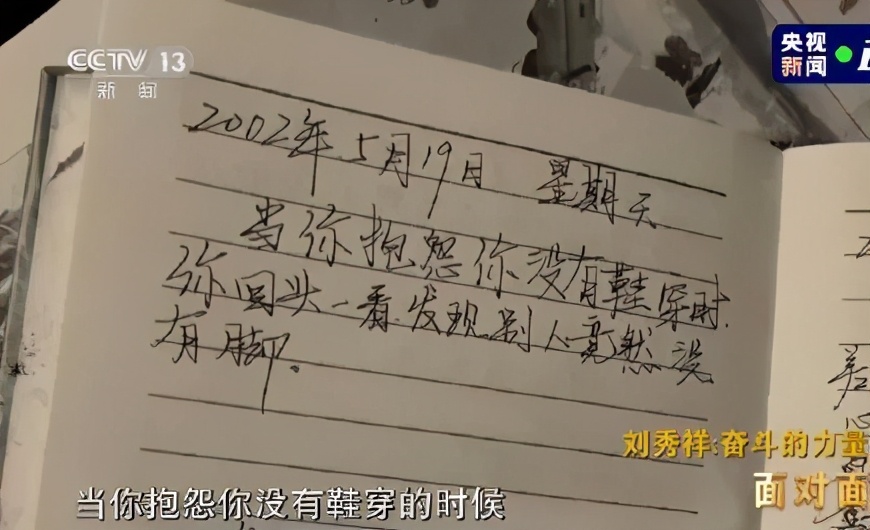 CCTV 13
新闻
央视
新闻
2002年5月19日 星期天
当你抱怨你没有鞋穿时.
你回头一看.发现别人竟然没
有脚.
刘秀祥:奋斗的力量
面对面
当你抱怨你没有鞋穿的时候